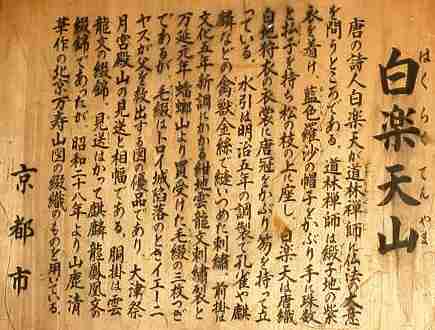 白楽天山
はくらくてんやま
唐の詩人白楽天が道林禅師に仏法の大意
を問うところである。道林禅師は緞子地の紫
衣を着け、藍色羅紗の帽子をかぶり手に珠数
と払子を持ち松の枝の上に座し、白楽天は唐織
白地狩衣の衣裳に唐冠をかぶり笏を持って立
っている。水引は明治五年の調製で孔雀や麒
麟などの禽獣金線で縫いつめた刺繍、前掛は
文化五年新調にかかる紺地雲龍文刺繍裂と
万延元年蟷螂山より買受けた毛綴の三枚つぎ
であるが、毛綴はトロイ城陥落のときイエーニ
ヤスが父を救出する図の優品であり、大津祭
月宮殿山の見送と相幅である。胴掛は雲
龍文の綴錦、見送はかつて麒麟龍鳳凰文の
綴錦であったが昭和二十八年より山鹿清
華作の北京万寿山図の綴織のものを用いている。
京都市